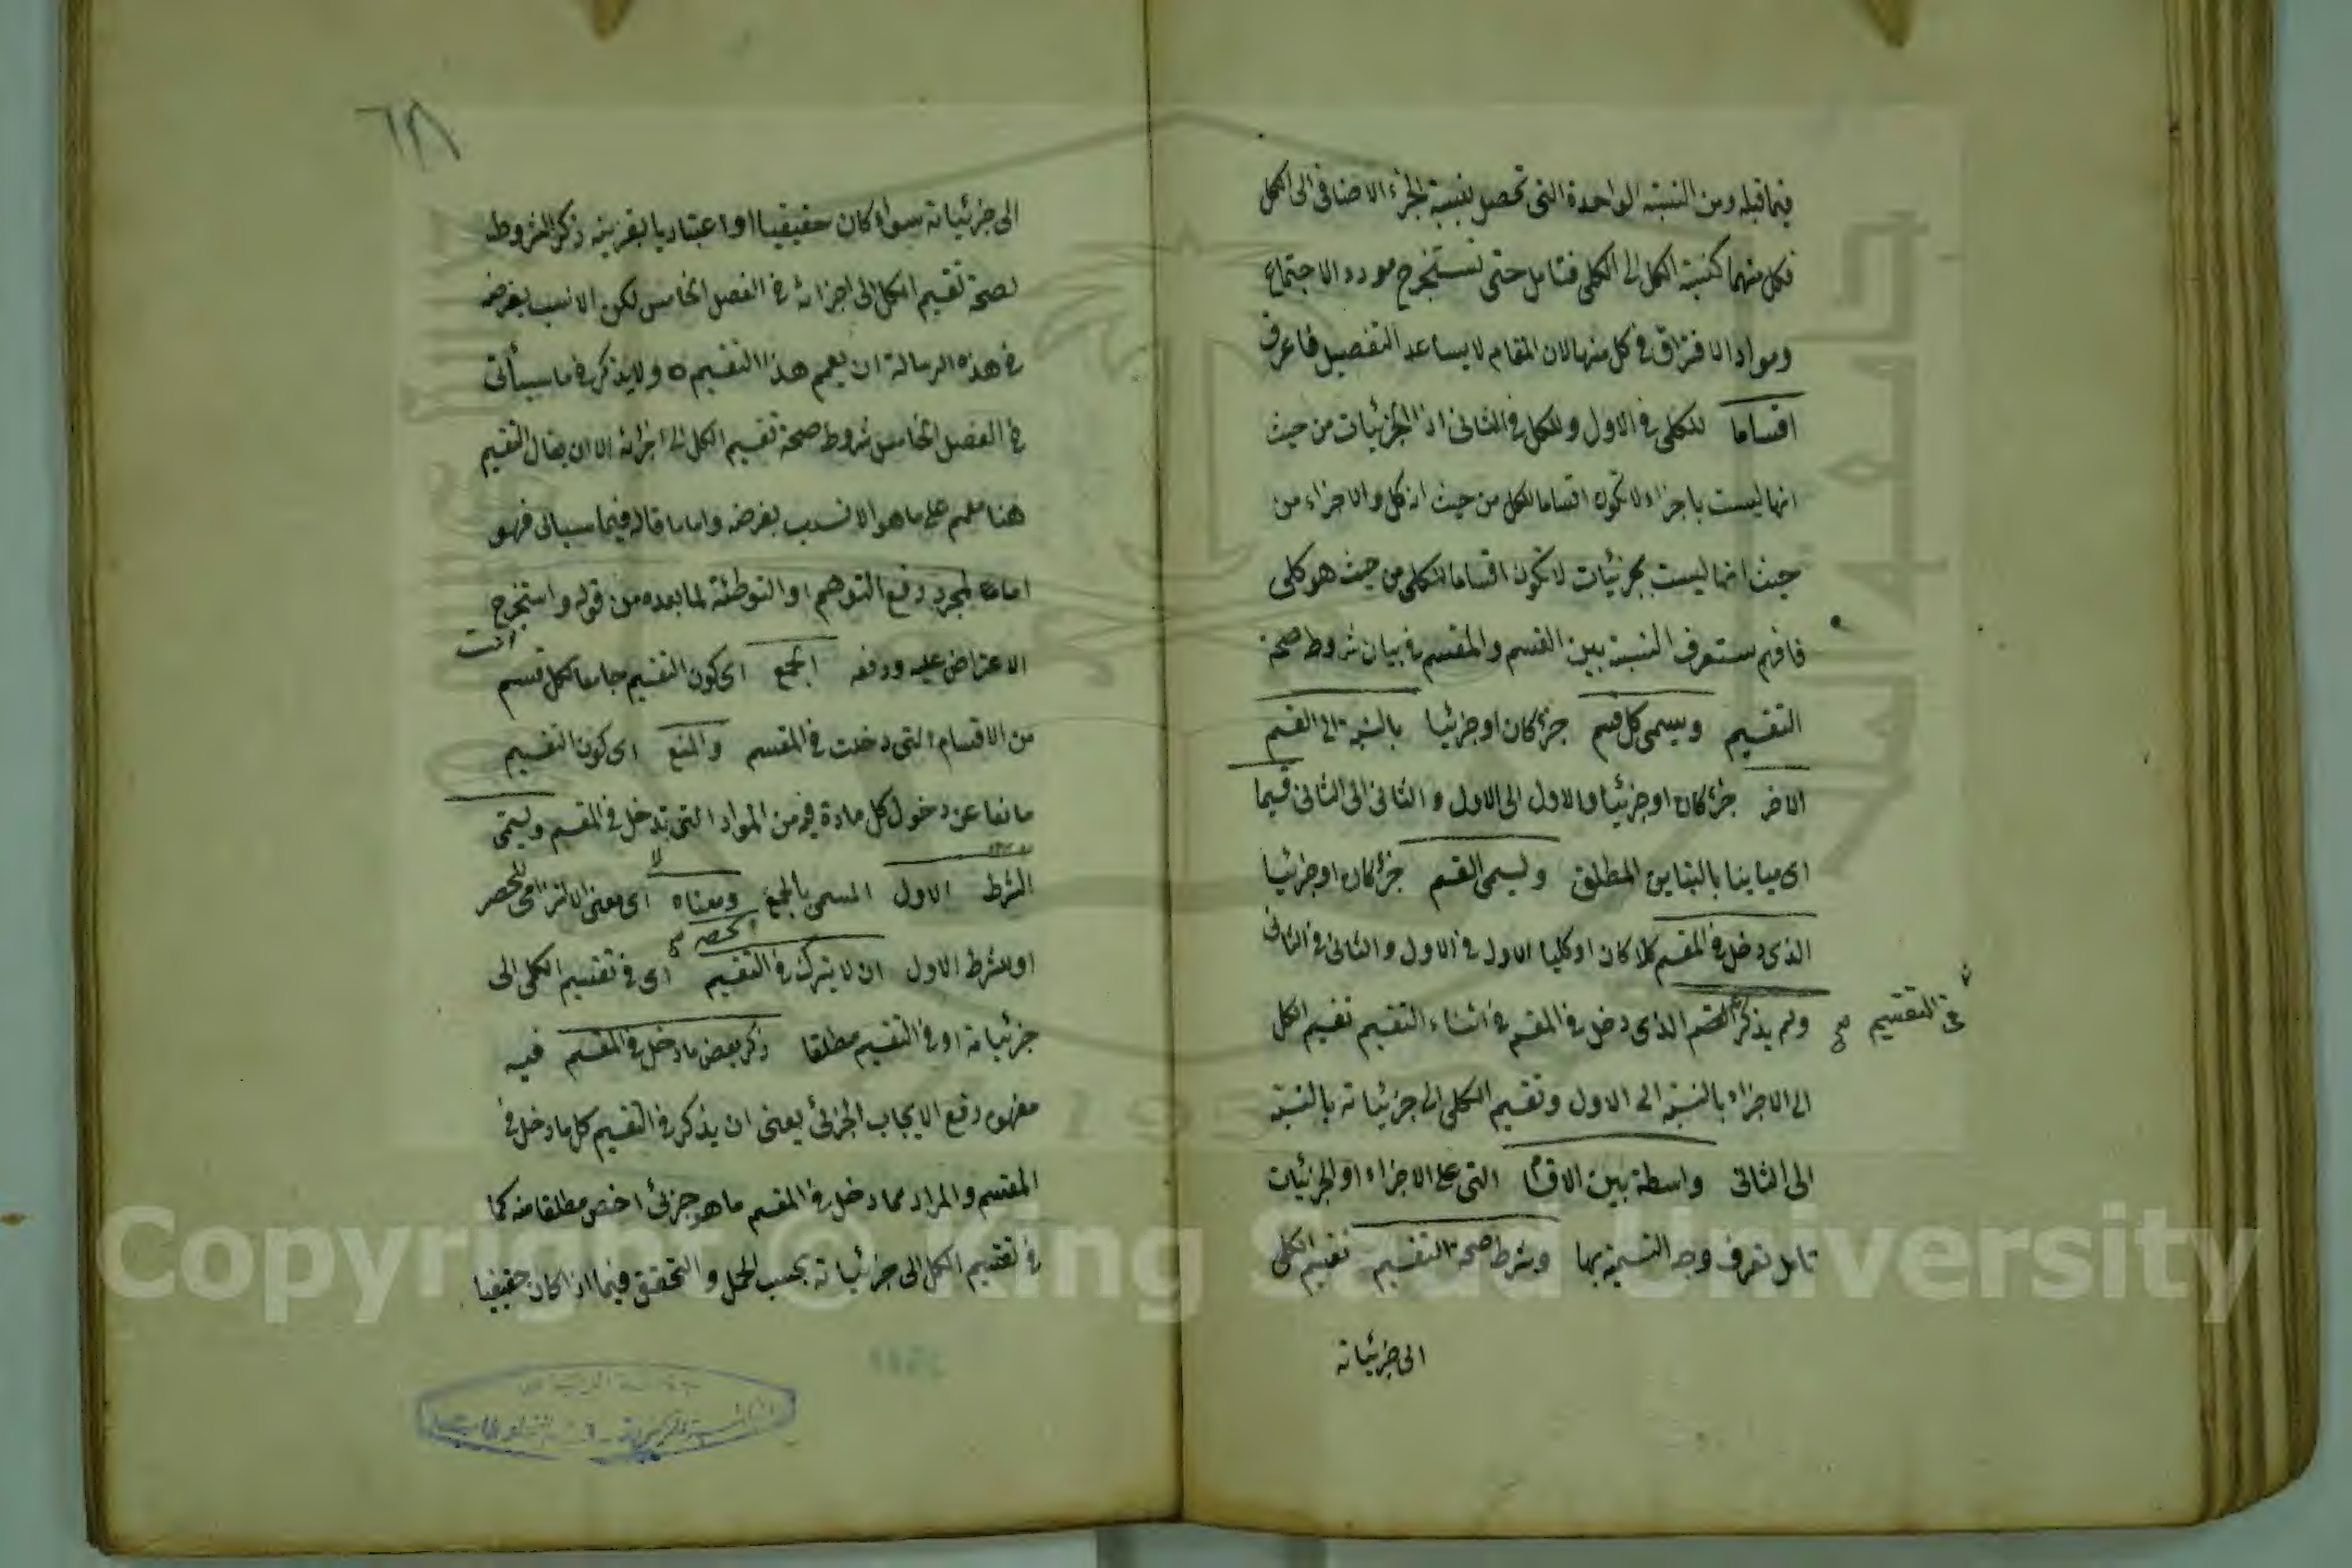 فيما قبله ومن النسبة الواحدة التى تحصل بنسبة الجزء الاضافى الى الكل
فكل منهما كنسبة الكل الى الكلى فتأمل حتى تستخرج مورد الاجتماع
ومواد الافتراق فى كل منها لان المقام لا يساعد التفصيل فاعرف
اقساما للكلى فى الاول وللكل فى الثانى اذ الجزئيات من حيث
انها ليست باجزاء لا تكون اقساما للكل من حيث انه كل والاجزاء من
حيث انها ليست بجزئيات لا تكون اقساما للكلى من حيث هو كلى
فافهم ستعرف النسبة بين القسم والمقسم فى بيان شروط صحة
التقسيم ويسمى كل قسم جزء كان او جزئيا بالنسبة الى القسم
الاخر جزء كان او جزئيا والاول الى الاول والثانى الى الثانى قسيما
اى مباينا بالتباين المطلق ويسمى القسم جزء كان او جزئيا
الذى دخل فى المقسم كلا كان او كليا الاول فى الاول والثانى فى الثانى
ولم يذكر القسم الذى دخل فى المقسم فى اثناء التقسيم تقسيم الكل
فى التقسيم صح
الى الاجزاء بالنسبة الى الاول وتقسيم الكلى الى جزئياته بالنسبة
الى الثانى واسطة بين الاقسام التى هى الاجزاء او الجزئيات
تأمل تعرف وجه التسمية بها وشرط صحة التقسيم تقسيم الكلى
الى جزئياته
الى جزئياته سواء كان حقيقيا او اعتباريا بقرينة ذكر الشروط
لصحة تقسيم الكل الى اجزائه فى الفصل الخامس لكن الانسب بغرضه
فى هذه الرسالة ان يعمم هذا التقسيم ولا يذكر فى ما سيأتى
فى الفصل الخامس شروط صحة تقسيم الكل الى اجزائه الا ان يقال التقسيم
هنا معمم على ما هو الانسب بغرضه واما ما قاله فيما سيأتى فهو
اما لمجرد دفع التوهم او التوطئة لما بعده من قوله واستخرج
انت
الاعتراض عليه ودفعه الجمع اى كون التقسيم جامعا لكل قسم
من الاقسام التى دخلت فى المقسم والمنع اى كون التقسيم
مانعا عن دخول كل مادة فيه من المواد التى تدخل فى المقسم ويسمى
الشرط الاول المسمى بالجمع ومعناه اى معنى الالتزامى للحصر
الحصر صح
او للشرط الاول ان لا يترك فى التقسيم اى فى تقسيم الكلى الى
جزئياته او فى التقسيم مطلقا ذكر بعض ما دخل فى المقسم فيه
مفهوم رفع الايجاب الجزئى يعنى ان يذكر فى التقسيم كل ما دخل فى
المقسم والمراد مما دخل فى المقسم ما هو جزئى اخص مطلقا منه كما
فى تقسيم الكل الى جزئياته بحسب الحمل والتحقق فيما اذا كان حقيقيا
Copyright © King Saud University